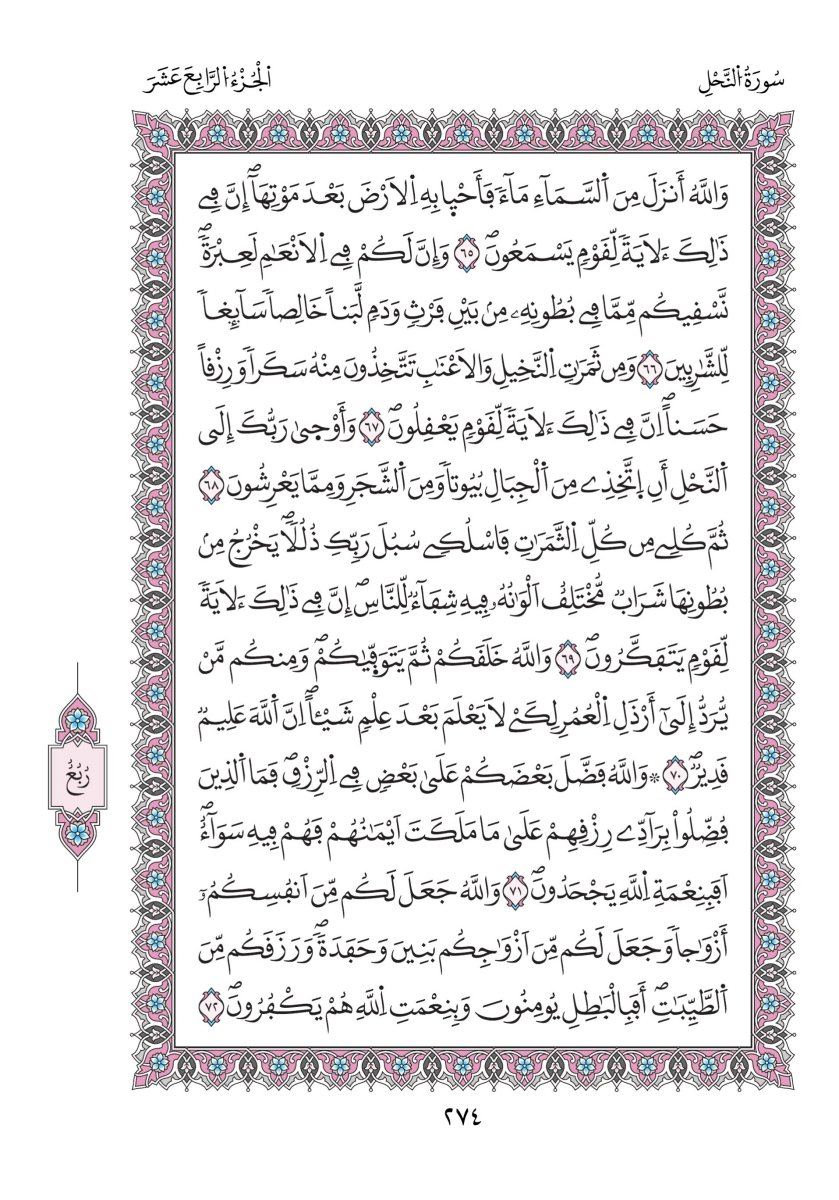 سُورَةُ اُ۬لنَّحْلِ
اُ۬لْجُزْءُ اُ۬لرَّابِعَ عَشَرَ
وَاللَّهُ أَنزَلَ مِنَ اَ۬لسَّمَآءِ مَآءٗ فَأَحْي۪ا بِهِ اِ۬لَارْضَ بَعْدَ مَوْتِهَآۖ إِنَّ فِے
ذَٰلِكَ ءَلَايَةٗ لِّقَوْمٖ يَسْمَعُونَۖ ٦٥ وَإِنَّ لَكُمْ فِے اِ۬لَانْعَٰمِ لَعِبْرَةٗۖ
نَّسْقِيكُم مِّمَّا فِے بُطُونِهِۦ مِنۢ بَيْنِ فَرْثٖ وَدَمٖ لَّبَناً خَالِصاٗ سَآئِغاٗ
لِّلشَّٰرِبِينَ ٦٦ وَمِن ثَمَرَٰتِ اِ۬لنَّخِيلِ وَالَاعْنَٰبِ تَتَّخِذُونَ مِنْهُ سَكَراٗ وَرِزْقاً
حَسَناًۖ اِنَّ فِے ذَٰلِكَ ءَلَايَةٗ لِّقَوْمٖ يَعْقِلُونَۖ ٦٧ وَأَوْح۪يٰ رَبُّكَ إِلَى
اَ۬لنَّحْلِ أَنِ اِ۪تَّخِذِے مِنَ اَ۬لْجِبَالِ بُيُوتاٗ وَمِنَ اَ۬لشَّجَرِ وَمِمَّا يَعْرِشُونَ ٦٨
ثُمَّ كُلِے مِن كُلِّ اِ۬لثَّمَرَٰتِ فَاسْلُكِے سُبُلَ رَبِّكِ ذُلُلاٗۖ يَخْرُجُ مِنۢ
بُطُونِهَا شَرَابٞ مُّخْتَلِفٌ اَلْوَٰنُهُۥ فِيهِ شِفَآءٞ لِّلنَّاسِۖ إِنَّ فِے ذَٰلِكَ ءَلَايَةٗ
لِّقَوْمٖ يَتَفَكَّرُونَۖ ٦٩ وَاللَّهُ خَلَقَكُمْ ثُمَّ يَتَوَفّ۪يٰكُمْۖ وَمِنكُم مَّنْ
يُّرَدُّ إِلَىٰٓ أَرْذَلِ اِ۬لْعُمُرِ لِكَےْ لَا يَعْلَمَ بَعْدَ عِلْمٖ شَيْـٔاًۖ اِنَّ اَ۬للَّهَ عَلِيمٞ
قَدِيرٞۖ ٧٠ ۞ وَاللَّهُ فَضَّلَ بَعْضَكُمْ عَلَىٰ بَعْضٖ فِے اِ۬لرِّزْقِۖ فَمَا اَ۬لذِينَ
فُضِّلُواْ بِرَآدِّے رِزْقِهِمْ عَلَىٰ مَا مَلَكَتَ اَيْمَٰنُهُمْ فَهُمْ فِيهِ سَوَآءٌۖ
اَفَبِنِعْمَةِ اِ۬للَّهِ يَجْحَدُونَۖ ٧١ وَاللَّهُ جَعَلَ لَكُم مِّنَ اَنفُسِكُمُۥٓ
أَزْوَٰجاٗ وَجَعَلَ لَكُم مِّنَ اَزْوَٰجِكُم بَنِينَ وَحَفَدَةٗۖ وَرَزَقَكُم مِّنَ
اَ۬لطَّيِّبَٰتِۖ أَفَبِالْبَٰطِلِ يُومِنُونَ وَبِنِعْمَتِ اِ۬للَّهِ هُمْ يَكْفُرُونَۖ ٧٢
رُبُعُ
٢٧٤